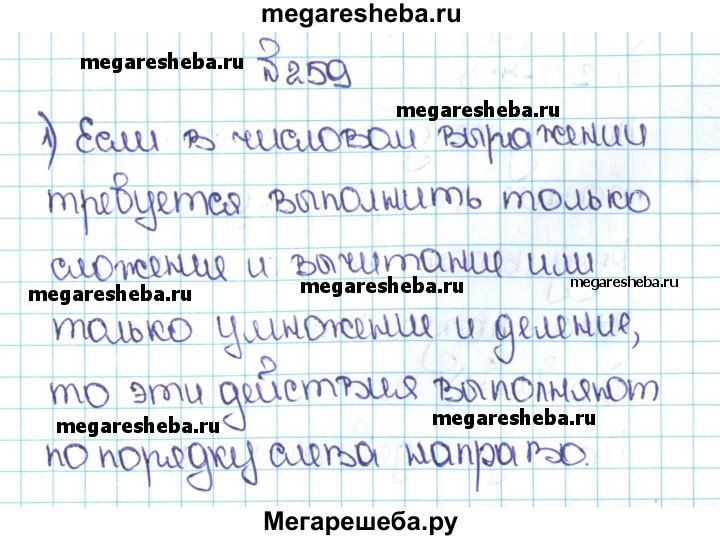 megaresheba.ru
megaresheba.ru
№259
megaresheba.ru
1) Если в числовом выражении
требуется выполнить только
сложение и вычитание или
megaresheba.ru
megaresheba.ru
megaresheba.ru
только умножение и деление,
то эти действия выполняют
megaresheba.ru
megaresheba.ru
по порядку слева направо.
Мегарешеба.ру